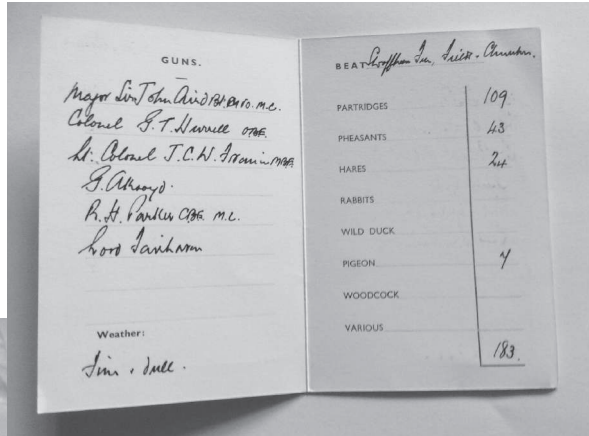 GUNS.
Major Sir John Aird Bt. M.C.
Colonel G. T. Hurrell OBE.
Lt: Colonel J.C.W. Francis MBE.
G. Akroyd.
R. H. Parker CBE. M.C.
Lord Fairhaven
Weather:
Fine . dull .
BEAT
PARTRIDGES 109
PHEASANTS 43
HARES 24
RABBITS
WILD DUCK
PIGEON 7
WOODCOCK
VARIOUS
183.